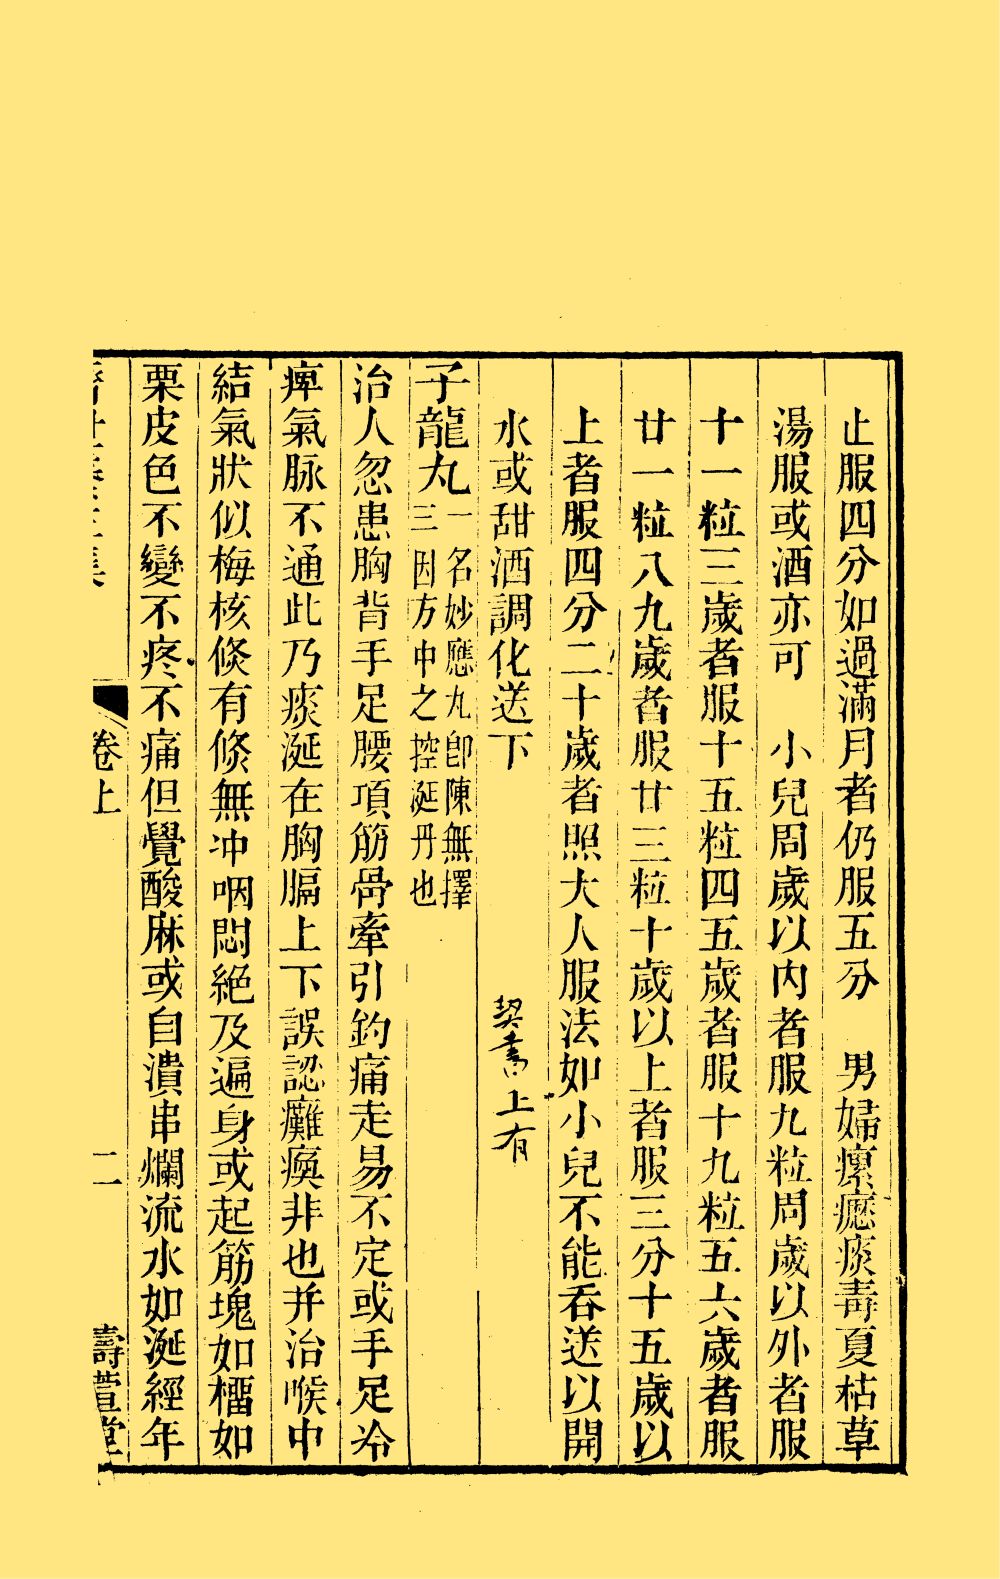 止服四分如過滿月者仍服五分　男婦瘰癧痰毒夏枯草
湯服或酒亦可　小兒周歲以內者服九粒周歲以外者服
十一粒三歲者服十五粒四五歲者服十九粒五六歲者服
廿一粒八九歲者服廿三粒十歲以上者服三分十五歲以
上者服四分二十歲者照大人服法如小兒不能吞送以開
水或甜酒調化送下
契書上有
子龍丸
一名妙應丸卽陳無擇
三因方中之控涎丹也
治人忽患胸背手足腰項筋骨牽引釣痛走易不定或手足冷
痺氣脉不通此乃痰涎在胸膈上下誤認癱瘓非也并治喉中
結氣狀似梅核倐有倐無冲咽悶絕及遍身或起筋塊如榴如
栗皮色不變不疼不痛但覺酸麻或自潰串爛流水如涎經年
卷上
二
壽萱堂